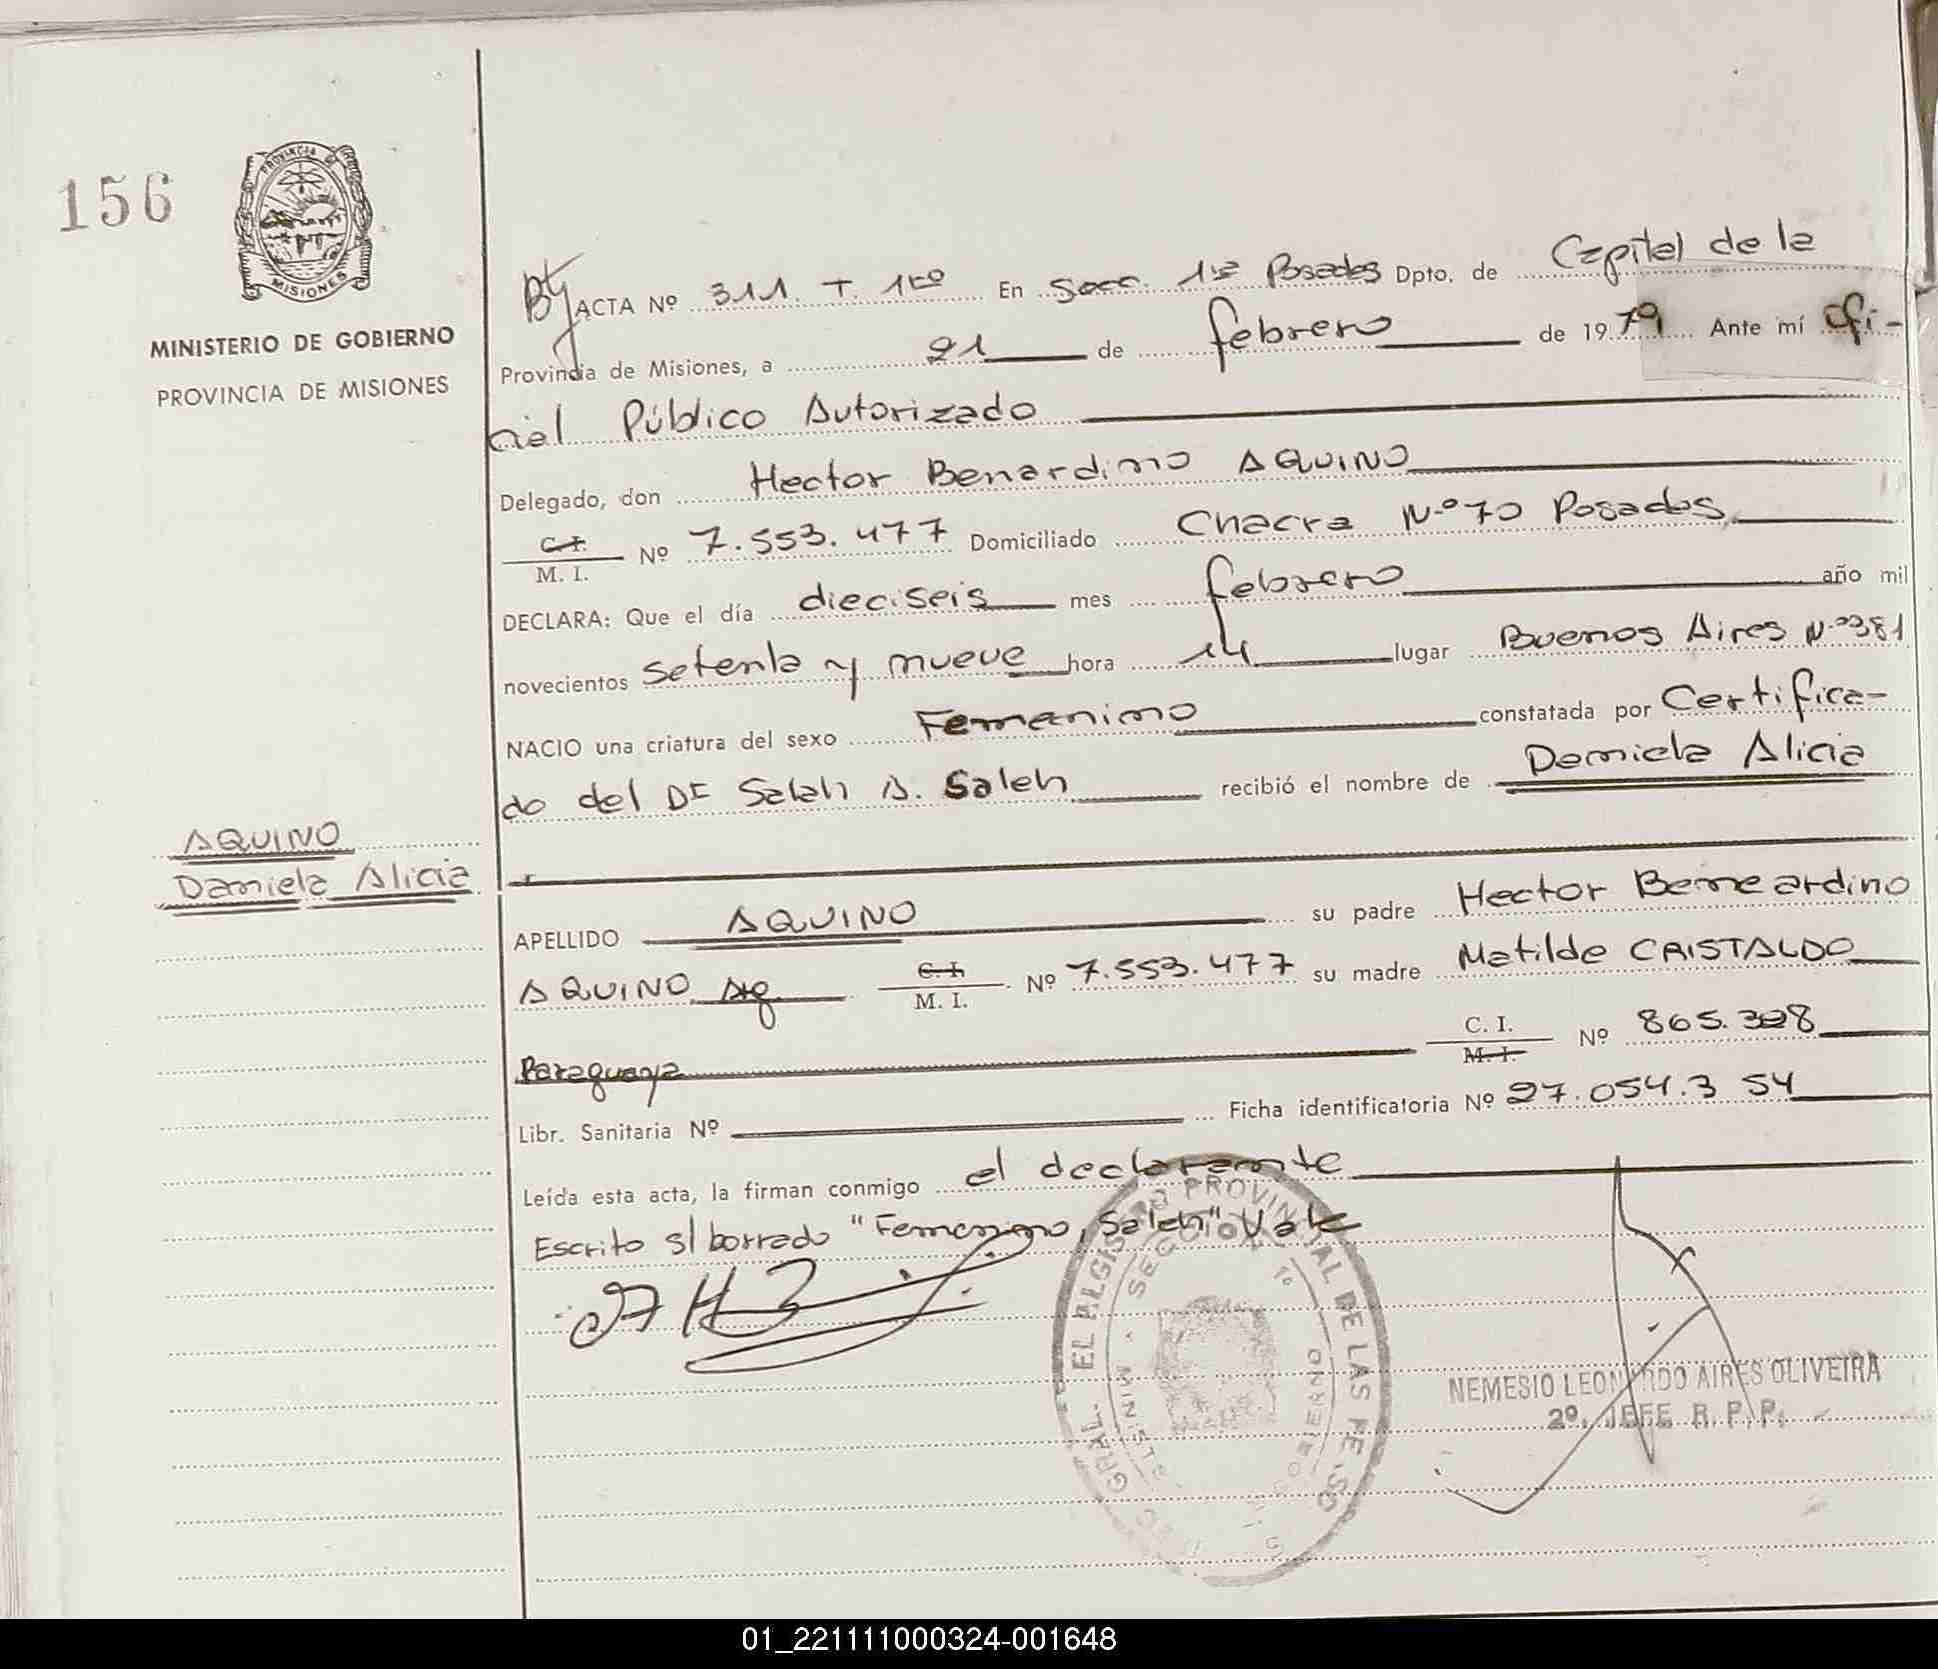 156
PROVINCIA DE
MISIONES
MINISTERIO DE GOBIERNO
PROVINCIA DE MISIONES
AQUINO
Daniela Alicia
ACTA Nº 311. T. 1ro En Secc. 1ra Posadas Dpto. de Capital de la
Provincia de Misiones, a 21 de febrero de 1979 Ante mí Ofi-
cial Público Autorizado
Delegado, don Hector Benardino AQUINO
C.I. / M. I. Nº 7.553.477 Domiciliado Chacra Nº 70 Posadas
DECLARA: Que el día dieciseis mes febrero año mil
novecientos setenta y nueve hora 14 lugar Buenos Aires Nº 381
NACIO una criatura del sexo Femenino constatada por Certifica-
do del Dr Salah A. Saleh recibió el nombre de Daniela Alicia
APELLIDO AQUINO su padre Hector Berneardino
AQUINO Arg C.I. / M. I. Nº 7.553.477 su madre Matilde CRISTALDO
Paraguaya C. I. / M.I. Nº 865.328
Libr. Sanitaria Nº Ficha identificatoria Nº 27.054.354
Leída esta acta, la firman conmigo el declarante
Escrito s/borrado "Femenino, Saleh" Vale
PROVINCIAL DE LAS PE
GRAL.
NEMESIO LEONARDO AIRES OLIVEIRA
2º. JEFE R. P. P.
01_221111000324-001648